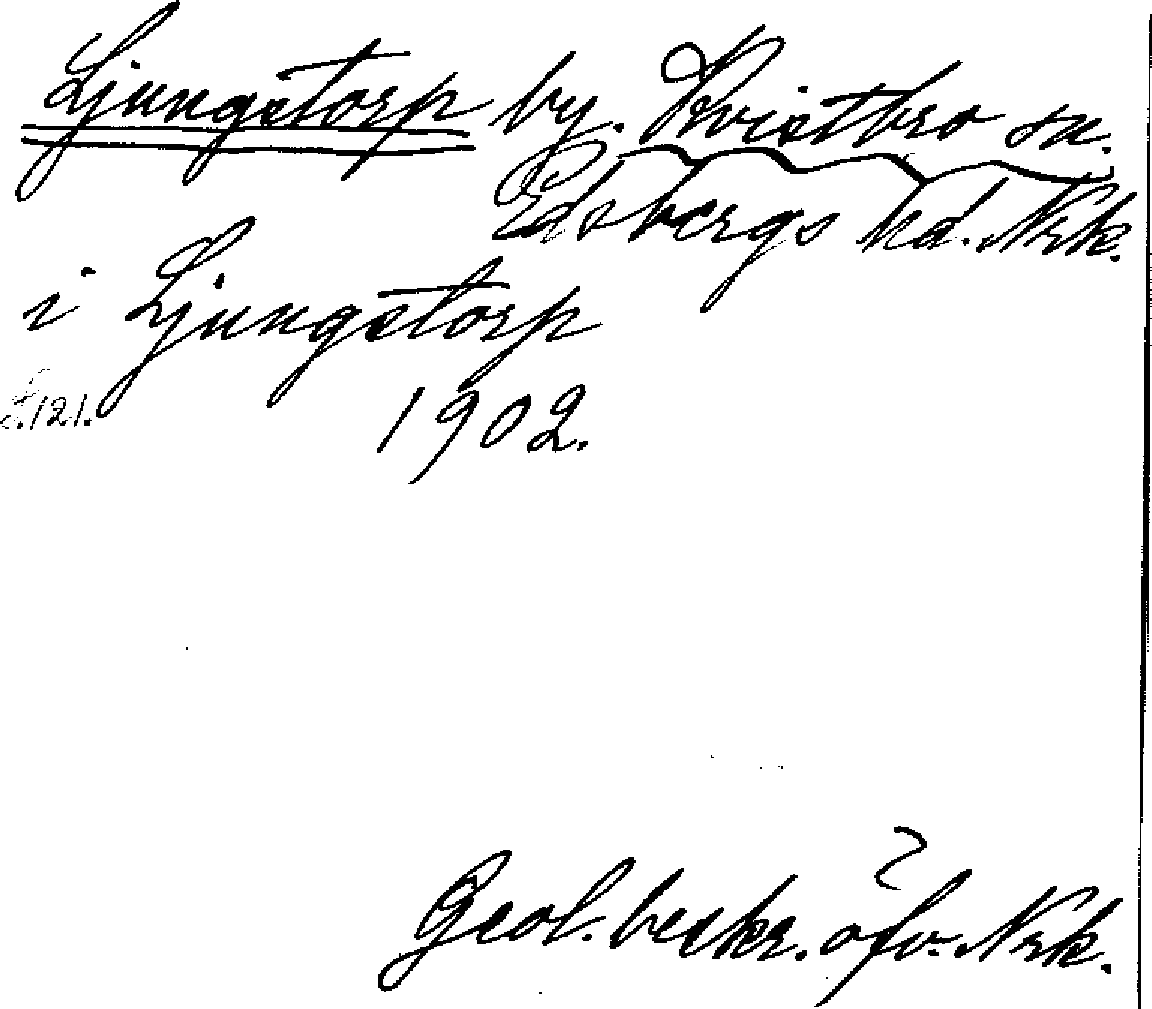 Ljungstorp by. Kvistbro sn.
Edsbergs hd. Nrk.
i Ljungstorp
s. 121.
1902.
Geol. beskr. öfv. Nrk.